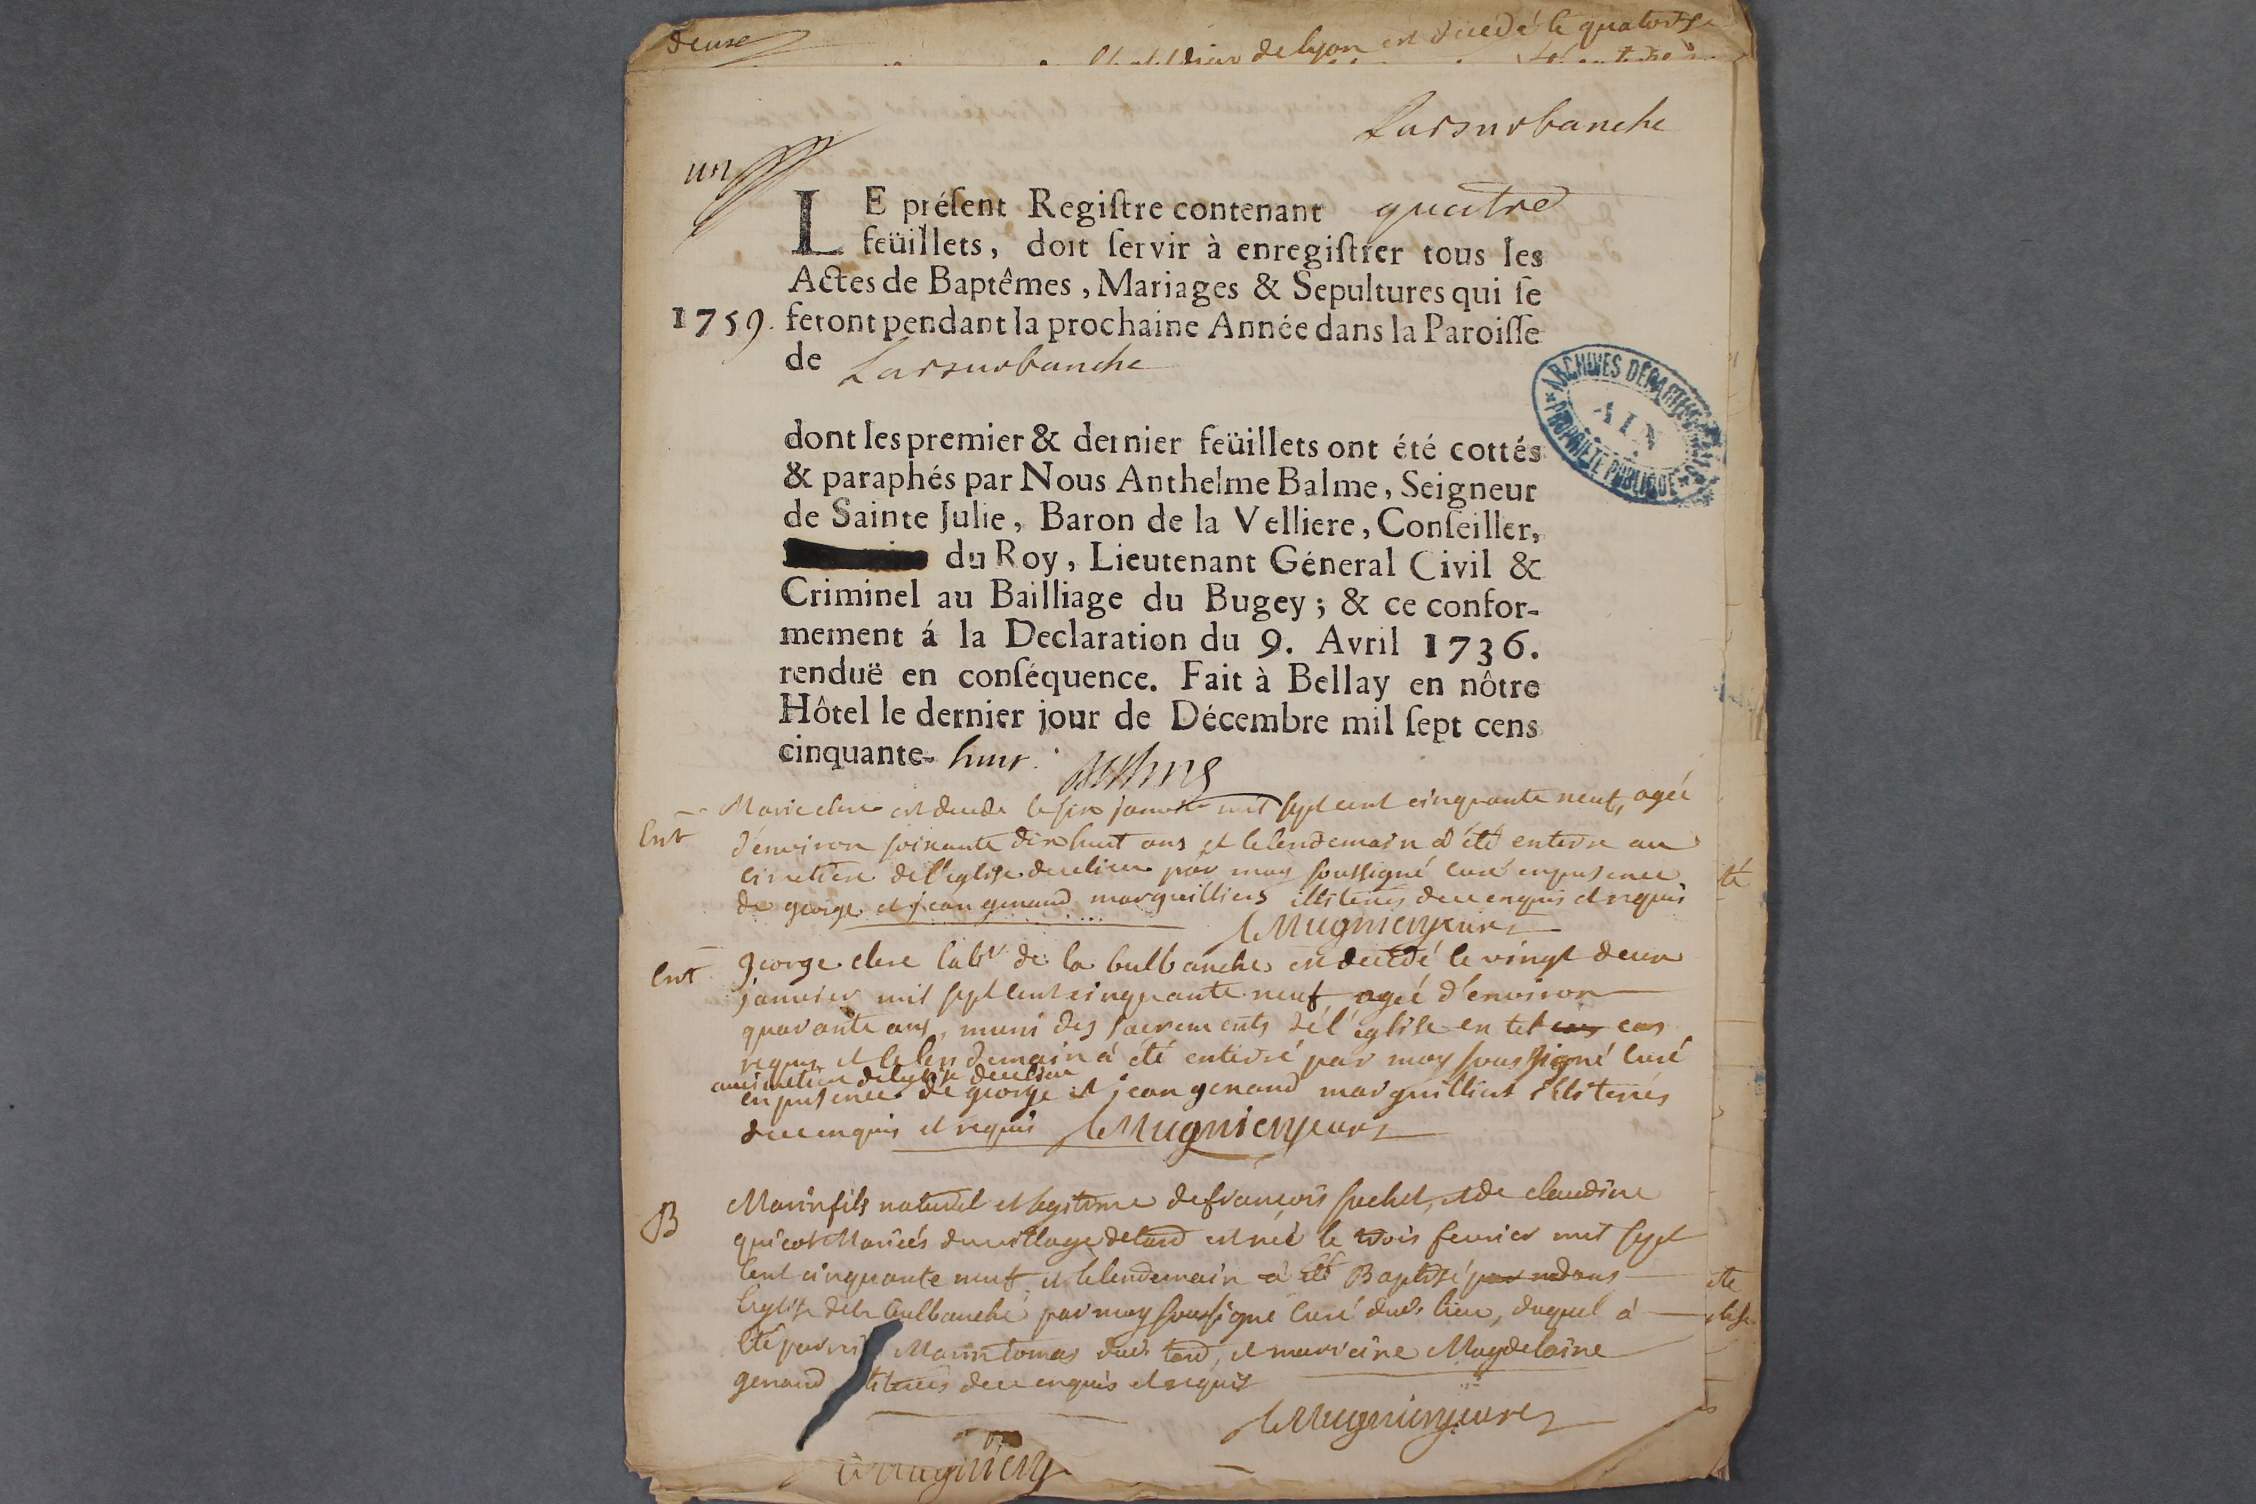 deuse
de lyon est décédé le quatorze
Larsurbanche
un
LE préſent Regiſtre contenant quatre
feüillets, doit ſervir à enregiſtrer tous les
Actes de Baptêmes, Mariages & Sepultures qui ſe
1759. feront pendant la prochaine Année dans la Paroiſſe
de Larsurbanche
ARCHIVES DÉPARTEMENTALES
AIN
PROPRIÉTÉ PUBLIQUE
dont les premier & dernier feüillets ont été cottés
& paraphés par Nous Anthelme Balme, Seigneur
de Sainte Julie, Baron de la Velliere, Conſeiller,
du Roy, Lieutenant Géneral Civil &
Criminel au Bailliage du Bugey; & ce confor-
mement á la Declaration du 9. Avril 1736.
renduë en conſéquence. Fait à Bellay en nôtre
Hôtel le dernier jour de Décembre mil ſept cens
cinquante- huit.
Ent Marie clerc est decedé le six janvier mil sept cent cinquante neuf, agée
d'environ soixante dix huit ans et le lendemain a été enterré au
cimetiere de l'eglise dudit lieu par moy soussigné curé en presence
de george et jean genand marguilliers illiterés de ce enquis et requis
Mugnieryeurs
Ent George clerc labr de la bulbanche est decedé le vingt deux
janvier mil sept cent cinquante neuf ageé d'environ
quarante ans, muni des sacrements de l'église en tel cas cas
requis et le lendemain à été enterré par moy soussigné Curé
au cimetiere de l'eglise dudit lieu
en presence de george et jean genand marguilliers illiterés
de ce enquis et requis Mugnieryeurs
B Marin fils naturel et legitime de francois suchet, et de claudine
quicot Mariés du village de tard est né le trois fevrier mil sept
cent cinquante neuf et le lendemain à été Baptisé par nd dans
l'eglise de la bulbanche par moy soussigné Curé dudt lieu, duquel à
été parrin Marin tomas dudt tard, et marraine Magdelaine
genand de ce enquis et requis
Mugnieryeurs
Mugniery